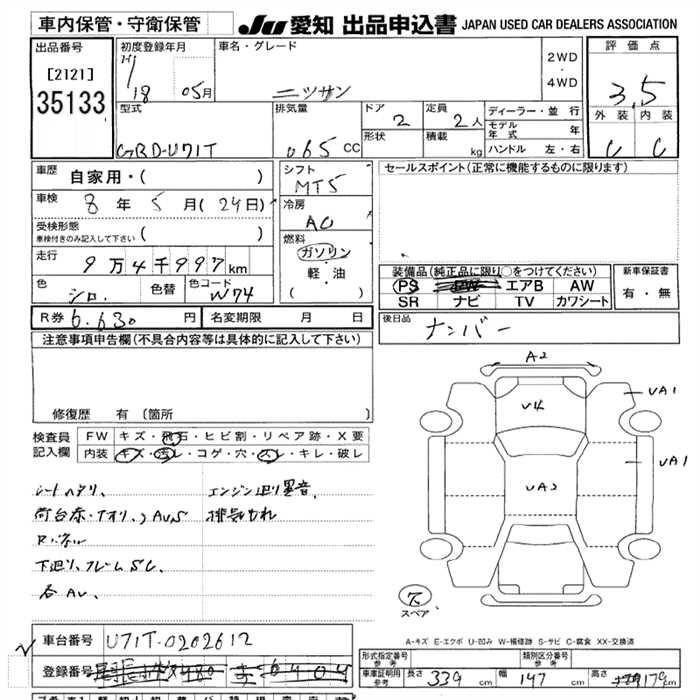 車内保管・守衛保管
JU 愛知 出品申込書 JAPAN USED CAR DEALERS ASSOCIATION
出品番号
[2121]
35133
初度登録年月
H/18 05月
車名・グレード
ニッサン
2WD
・
4WD
評価点
3.5
外装 内装
C C
型式
GBD-U71T
排気量
065 CC
ドア
2
形状
定員
2人
積載
kg
ディーラー・並行
モデル年式 年
ハンドル 左・右
車歴
自家用・( )
車検
8年5月(24日)
受検形態
車検付きのみ記入して下さい ( )
走行
9万4千997km
色
シロ.
色替
色コード
W74
シフト
MT5
冷房
AC
燃料
ガソリン
軽・油
( )
セールスポイント(正常に機能するものに限ります)
装備品(純正品に限り○をつけてください)
PS PW エアB AW
SR ナビ TV カワシート
新車保証書
有・無
R券 6.630円
名変期限 月 日
後日品 ナンバー
注意事項申告欄(不具合内容等は具体的に記入して下さい)
修復歴 有〔箇所
検査員
記入欄
FW キズ・飛石・ヒビ割・リペア跡・X要
内装 キズ・ヨゴレ・コゲ・穴・スレ・キレ・破レ
シートヘタリ、
エンジン廻り異音、
荷台床・アオリ、ウAU,S
排気もれ
Rパネル
下廻り、フレームSC、
各AU、
A2
U4
UA1
UA2
UA1
スペア
A-キズ E-エクボ U-凹み W-補修跡 S-サビ C-腐食 XX-交換済
車台番号 U71T-0202612
登録番号
形式指定番号
参考
類別区分番号
参考
車庫証明用
参考
長さ 339 cm
幅 147 cm
高さ 179 cm